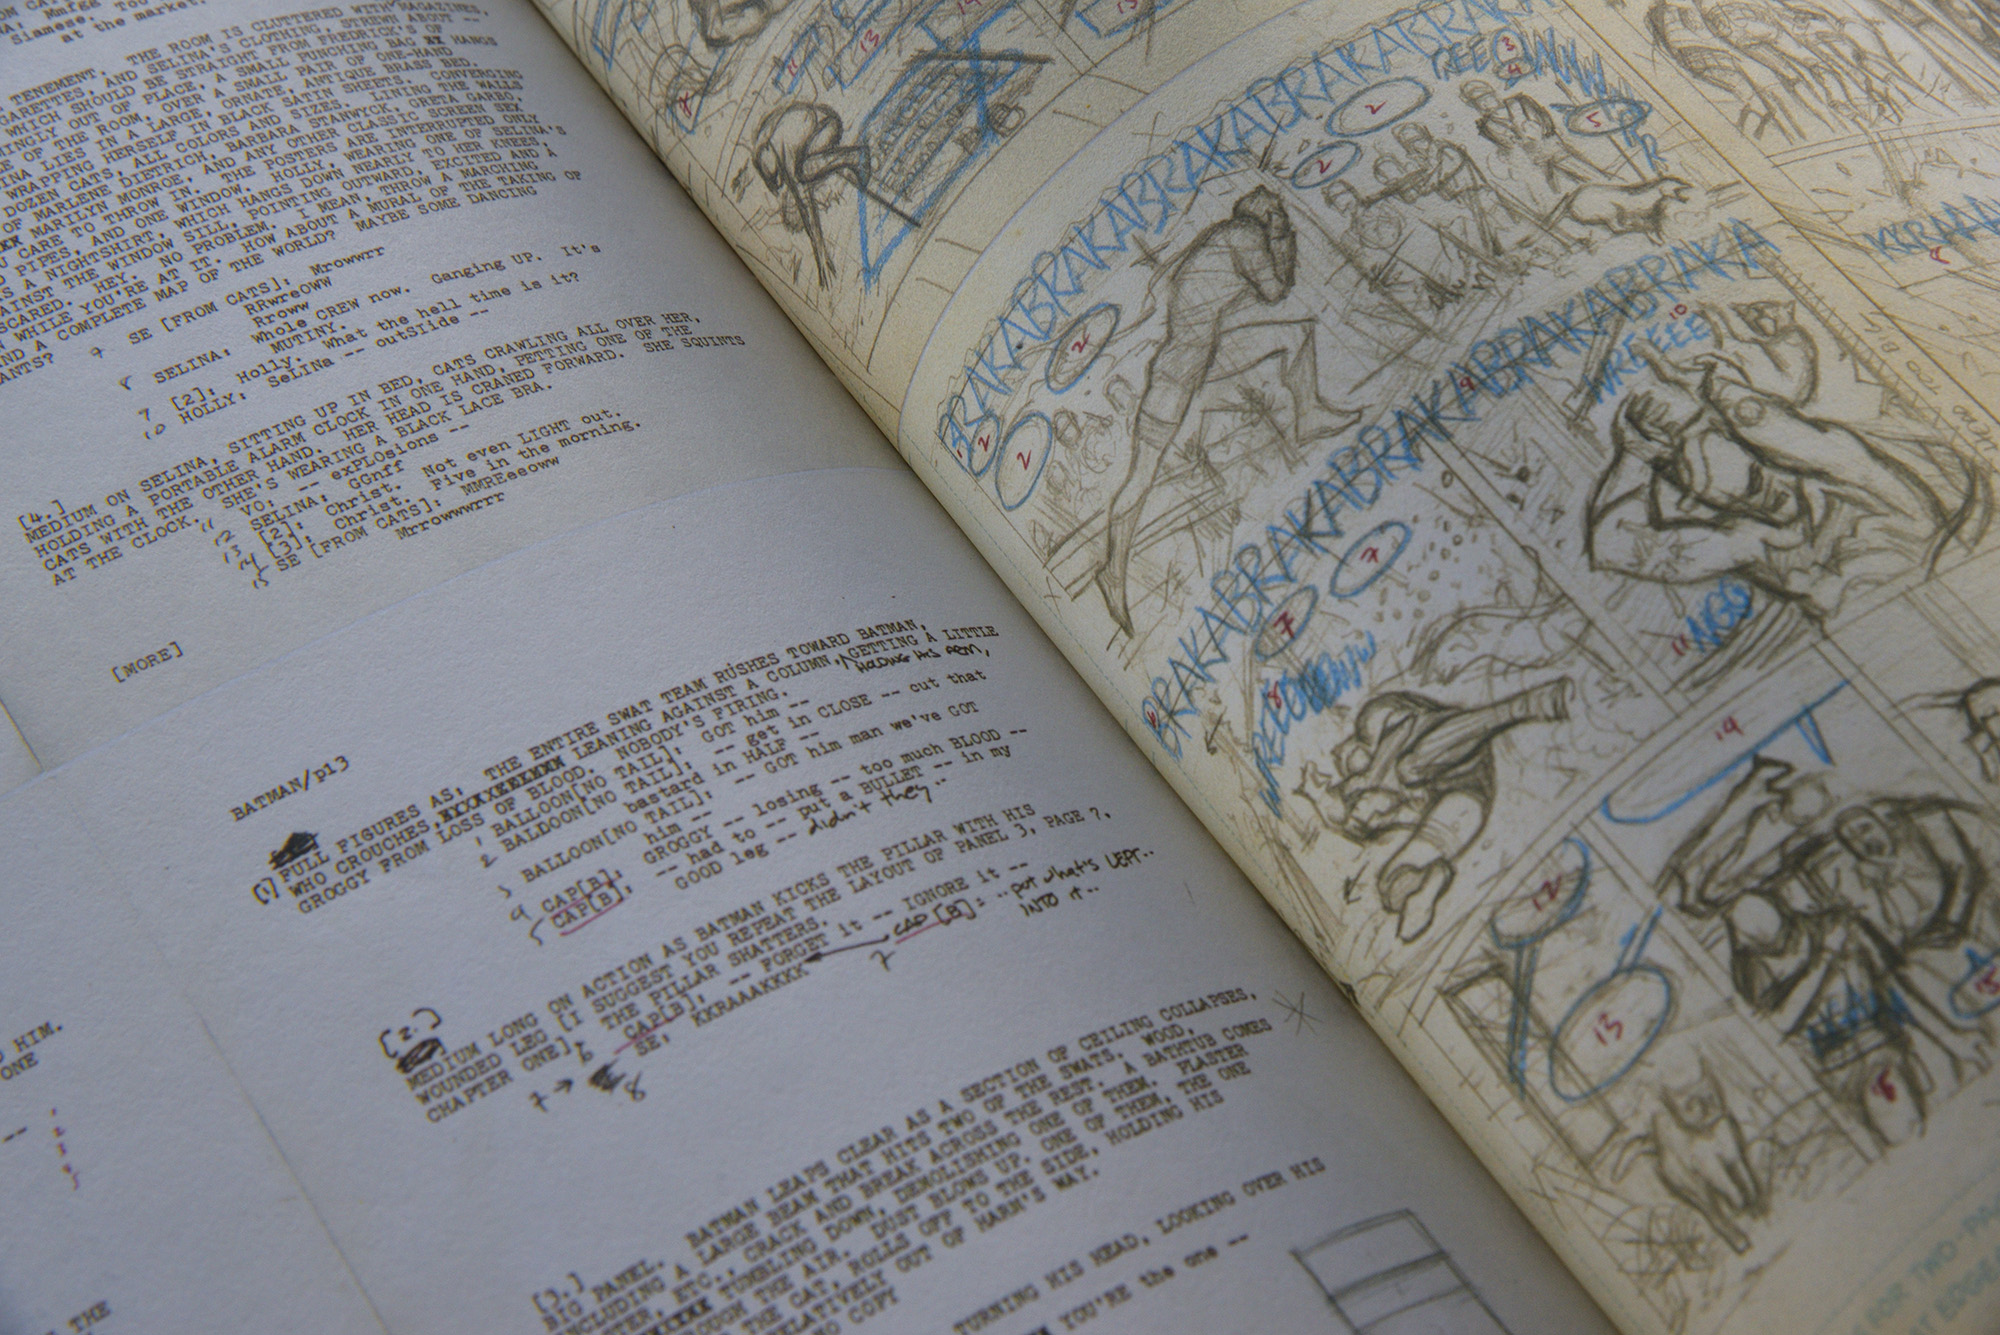 Siamese. You
at the market.
TENEMENT, THE ROOM IS CLUTTERED WITH MAGAZINES,
GARETTES, AND SELINA'S CLOTHING, STREWN ABOUT --
WHICH SHOULD BE STRAIGHT FROM FREDRICK'S OF
INGLY OUT OF PLACE, A SMALL PUNCHING BAG HANGS
OF THE ROOM, OVER A SMALL PAIR OF ONE-HAND
INA LIES IN A LARGE, ORNATE, ANTIQUE BRASS BED.
WRAPPING HERSELF IN BLACK SATIN SHEETS. CONVERGING
DOZEN CATS, ALL COLORS AND SIZES. LINING THE WALLS
OF MARLENE DIETRICH, BARBARA STANWYCK, GRETA GARBO,
MARILYN MONROE, AND ANY OTHER CLASSIC SCREEN SEX
U CARE TO THROW IN. THE POSTERS ARE INTERRUPTED ONLY
D PIPES, AND ONE WINDOW. HOLLY, WEARING ONE OF SELINA'S
S A NIGHTSHIRT, WHICH HANGS DOWN NEARLY TO HER KNEES,
AINST THE WINDOW SILL, POINTING OUTWARD, EXCITED AND A
SCARED. HEY. NO PROBLEM. I MEAN, THROW A MARCHING
N WHILE YOU'RE AT IT. HOW ABOUT A MURAL OF THE TAKING OF
ND A COMPLETE MAP OF THE WORLD? MAYBE SOME DANCING
ANTS?
SE [FROM CATS]; Mrowwrr
RRwreOww
Rroww
8 SELINA; Whole CREW now. Ganging UP. It's
MUTINY.
9 [2]; Holly. What the hell time is it?
10 HOLLY; SeLINa -- outSIide --
[4.]
MEDIUM ON SELINA, SITTING UP IN BED, CATS CRAWLING ALL OVER HER,
HOLDING A PORTABLE ALARM CLOCK IN ONE HAND, PETTING ONE OF THE
CATS WITH THE OTHER HAND. HER HEAD IS CRANED FORWARD. SHE SQUINTS
AT THE CLOCK. SHE'S WEARING A BLACK LACE BRA.
11 VO; -- exPLOsions --
12 SELINA; GGnff
13 [2]; Christ. Not even LIGHT out.
14 [3]; Christ. Five in the morning.
15 SE [FROM CATS]; MMREeeoww
Mrrowwwrrr
[MORE]
BATMAN/p13
(1) FULL FIGURES AS, THE ENTIRE SWAT TEAM RUSHES TOWARD BATMAN,
WHO CROUCHES, LEANING AGAINST A COLUMN, HOLDING HIS ARM, GETTING A LITTLE
GROGGY FROM LOSS OF BLOOD. NOBODY'S FIRING.
1 BALLOON[NO TAIL]; GOT him --
2 BALOON[NO TAIL]; -- get in CLOSE -- cut that
bastard in HALF --
3 BALLOON[NO TAIL]; -- GOT him man we've GOT
him --
4 CAP[B]; GROGGY -- losing -- too much BLOOD --
5 CAP[B]; -- had to -- put a BULLET -- in my
GOOD leg -- didn't they..
[2.]
MEDIUM LONG ON ACTION AS BATMAN KICKS THE PILLAR WITH HIS
WOUNDED LEG [I SUGGEST YOU REPEAT THE LAYOUT OF PANEL 3, PAGE 7,
CHAPTER ONE]. THE PILLAR SHATTERS.
6 CAP[B]; -- FORGET it -- IGNORE it --
7 CAP[B]: ..put what's LEFT..
INTO it..
7 → 8 SE; KKRAAAKKKK
[3.]
BIG PANEL. BATMAN LEAPS CLEAR AS A SECTION OF CEILING COLLAPSES,
INCLUDING A LARGE BEAM THAT HITS TWO OF THE SWATS. WOOD,
STER, ETC., CRACK AND BREAK ACROSS THE REST. A BATHTUB COMES
TUMBLING DOWN, DEMOLISHING ONE OF THEM. PLASTER
OUGH THE AIR. DUST BLOWS UP. ONE OF THEM, THE ONE
THE CAT, ROLLS OFF TO THE SIDE, HOLDING HIS
RELATIVELY OUT OF HARM'S WAY.
NO COPY
TURNING HIS HEAD, LOOKING OVER HIS
YOU'RE the one --
HIM.
ONE
--
THE
13
BRAKABRAKABRAKABRAKABRAKABRAKA
REEOWWW
2
2
5
2
2
2
BRAKABRAKABRAKABRAKABRAKABRAKA
9
10
WREEEE
7
7
8
WREEOWWW
11 NGG
KKRAAA
8
14
12
13
15
FOR TWO-PA
T EDGE